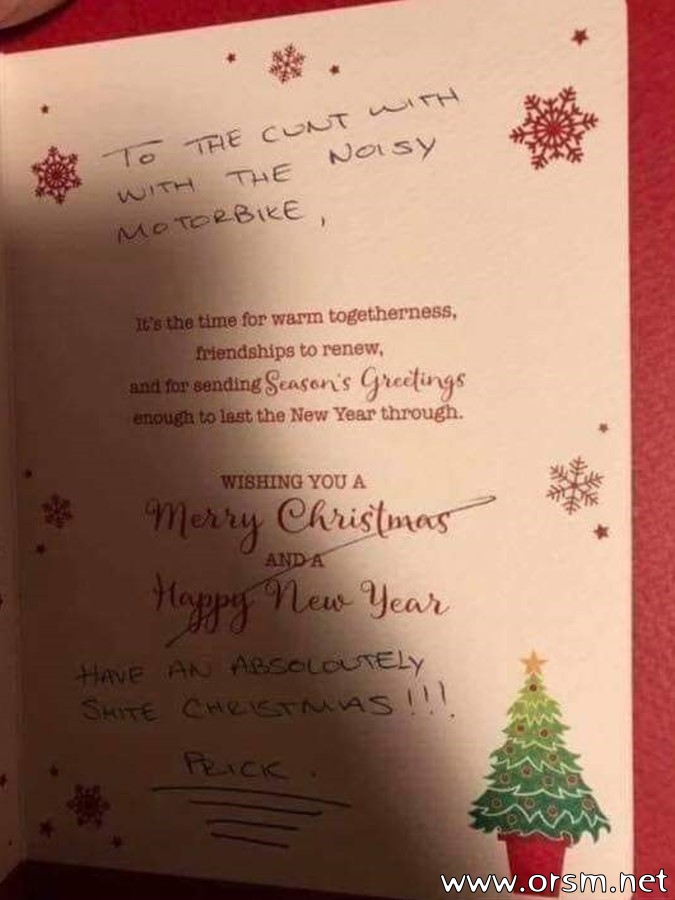 TO THE CUNT WITH
WITH THE NOISY
MOTORBIKE,
It's the time for warm togetherness,
friendships to renew,
and for sending Season's Greetings
enough to last the New Year through.
WISHING YOU A
Merry Christmas
AND A
Happy New Year
HAVE AN ABSOLOUTELY
SHITE CHRISTMAS!!!
PRICK.
www.orsm.net